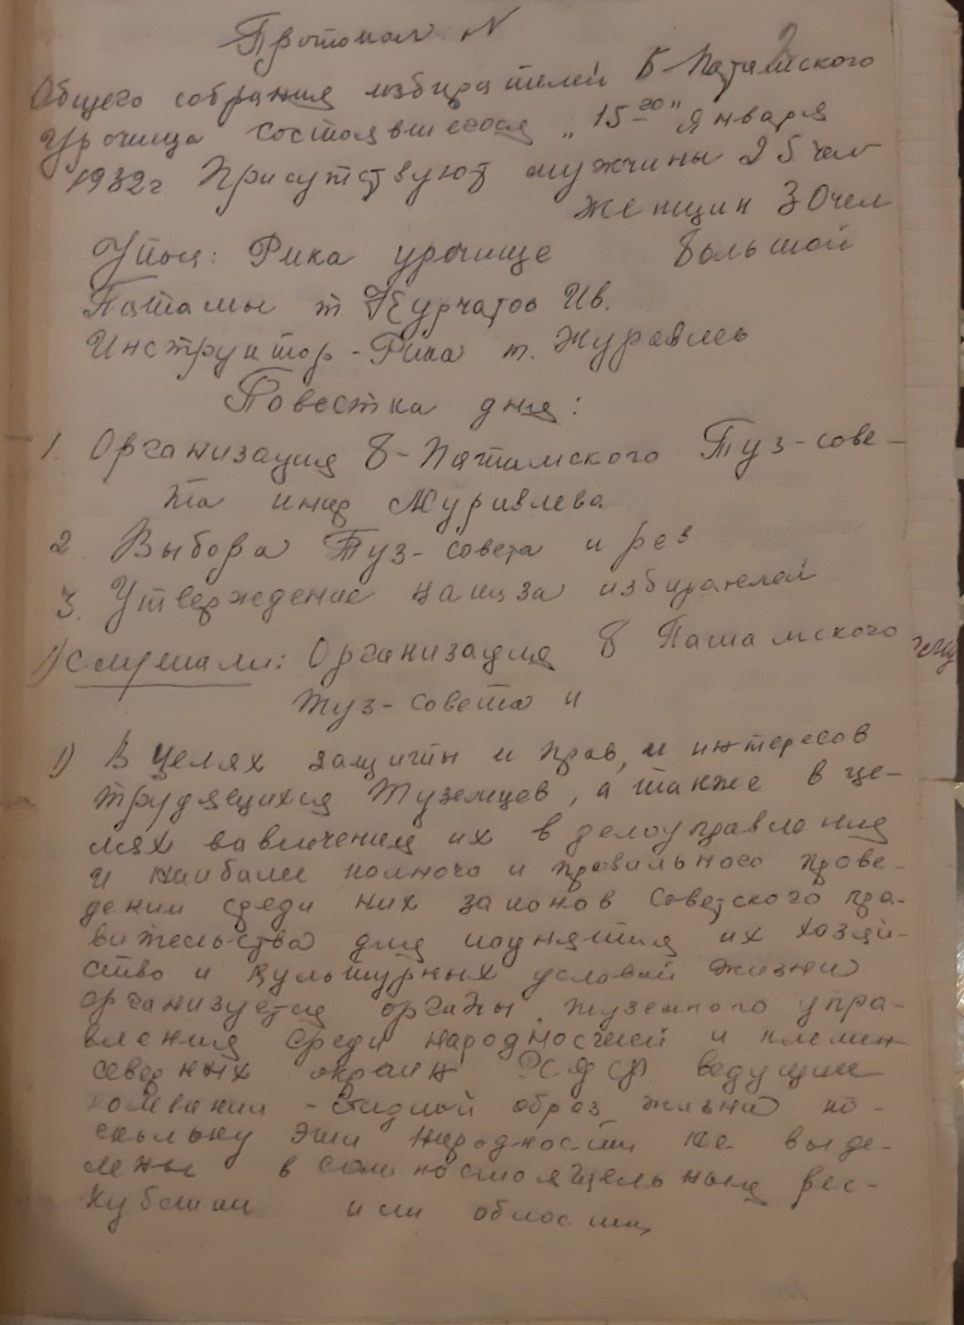 Протокол N
2
Общего собрания избирателей Б-Патамского
Урочища состоявшегося "15го" Января
1932г. Присутствуют мужчины 25 чел
женщин 30 чел
Упол: Рика урочище Большой
Патамы т Курчатов Ив.
Инструктор-Рика т. Журавлев
Повестка дня:
1. Организация Б-Патамского Туз-сове-
та Журавлева
2 Выбора Туз-совета и рев
3. Утверждение избирателей
1) Слушали: Организация Б Патамского
туз-совета и
1) В целях защиты и прав, и интересов
трудящихся Туземцев, а также в це-
лях вавлечения их в делоуправления
и наиболее полного и правильного прове-
дении среди них законов Советского пра-
вительства для поднятия их хозяй-
ство и культурных условий жизни
организуется органы туземного упра-
вления среди народностией и племен
северных окраин РСФСР ведущие
образ жизни по-
скольку эти народности не выде-
лены в самностоятельныя рес-
публики или области